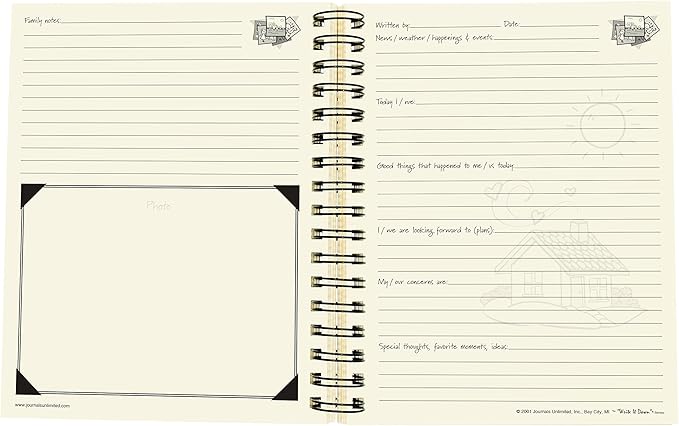 Family notes:
Photo
www.journalsunlimited.com
Written by: Date:
News / weather / happenings & events:
Today I / we:
Good things that happened to me / us today:
I / we are looking forward to (plans):
My / our concerns are:
Special thoughts, favorite moments, ideas:
© 2001 Journals Unlimited, Inc., Bay City, MI ~ "Write It Down" ~ Series